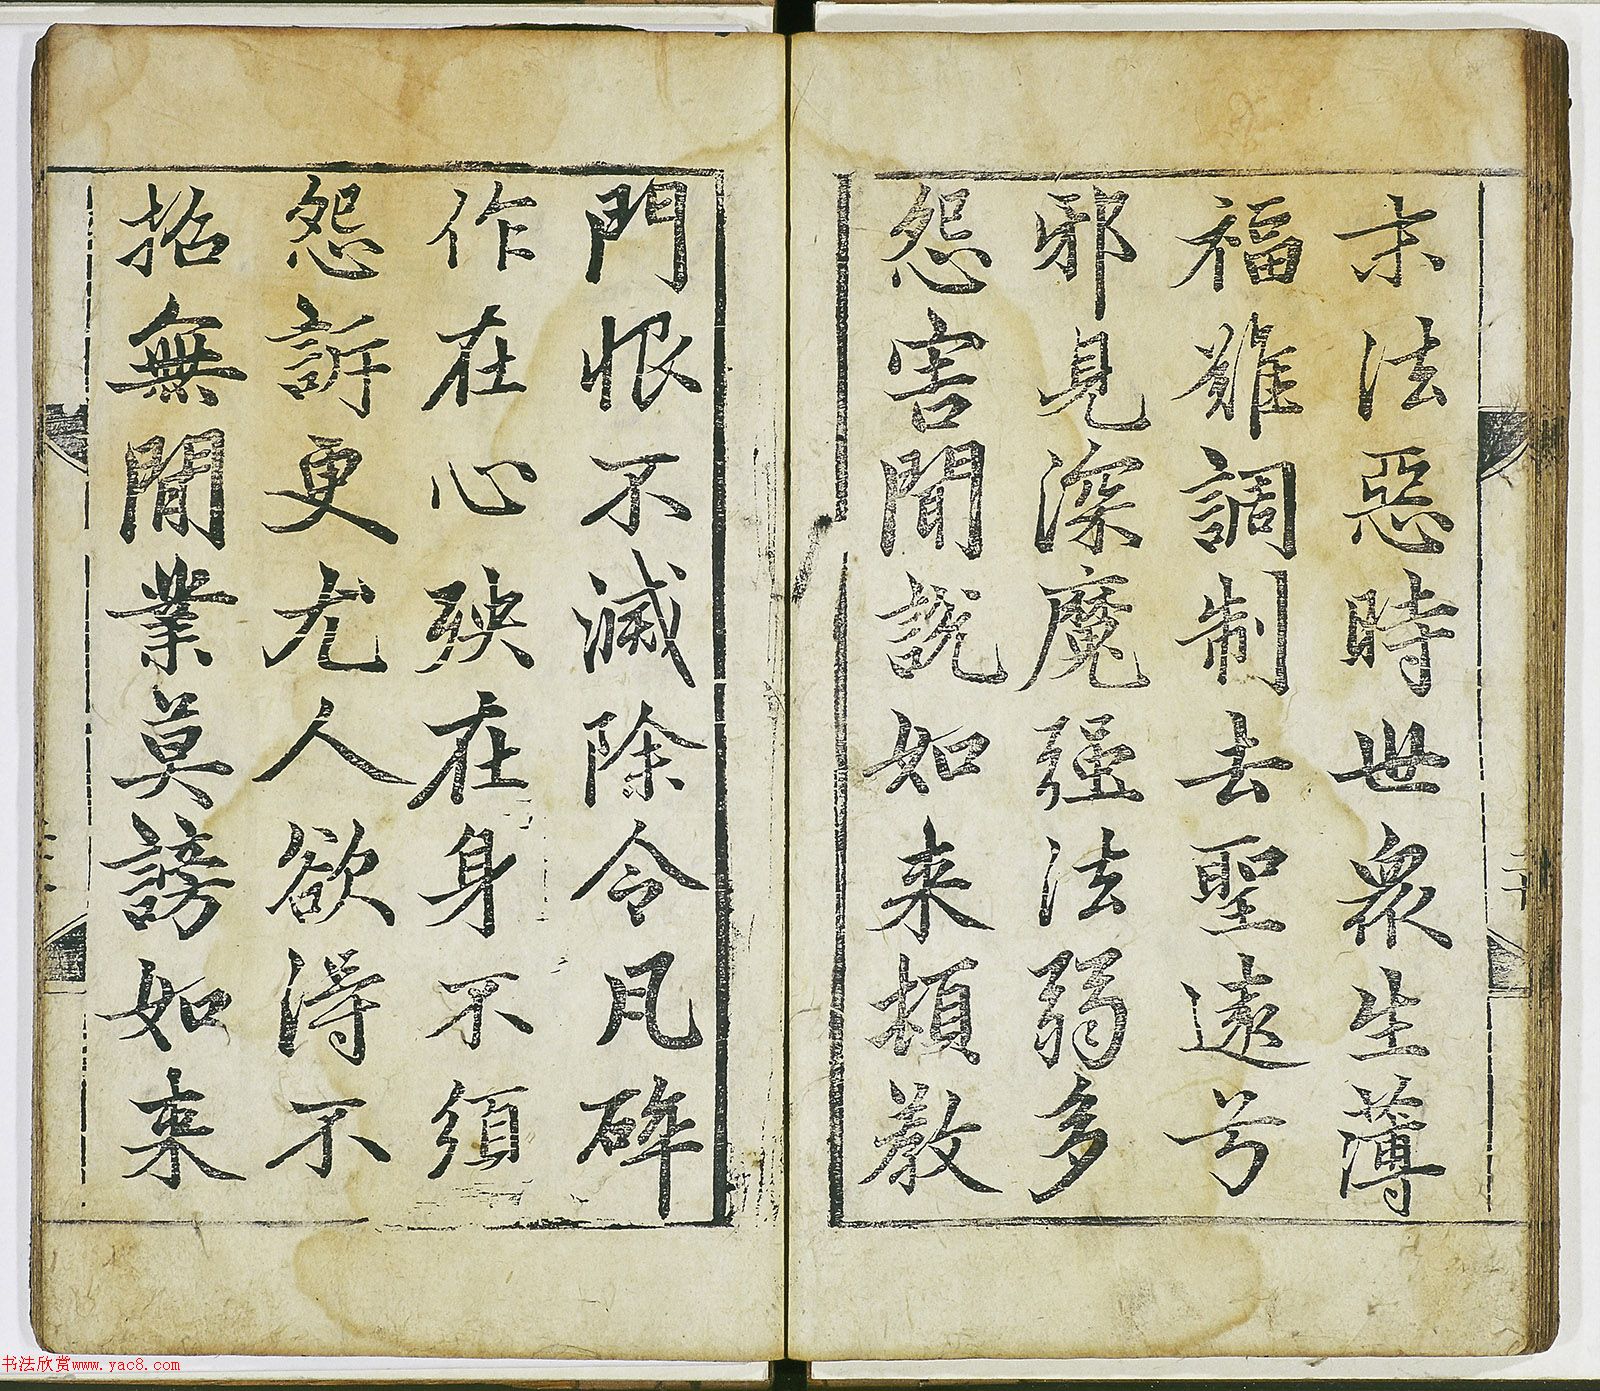 末法惡時世衆生薄
福難調制去聖遠兮
邪見深魔强法弱多
怨害聞說如来頓教
門恨不滅除令凡碎
作在心殃在身不須
怨訴更尤人欲得不
招無間業莫謗如来
二十
书法欣赏www.yac8.com